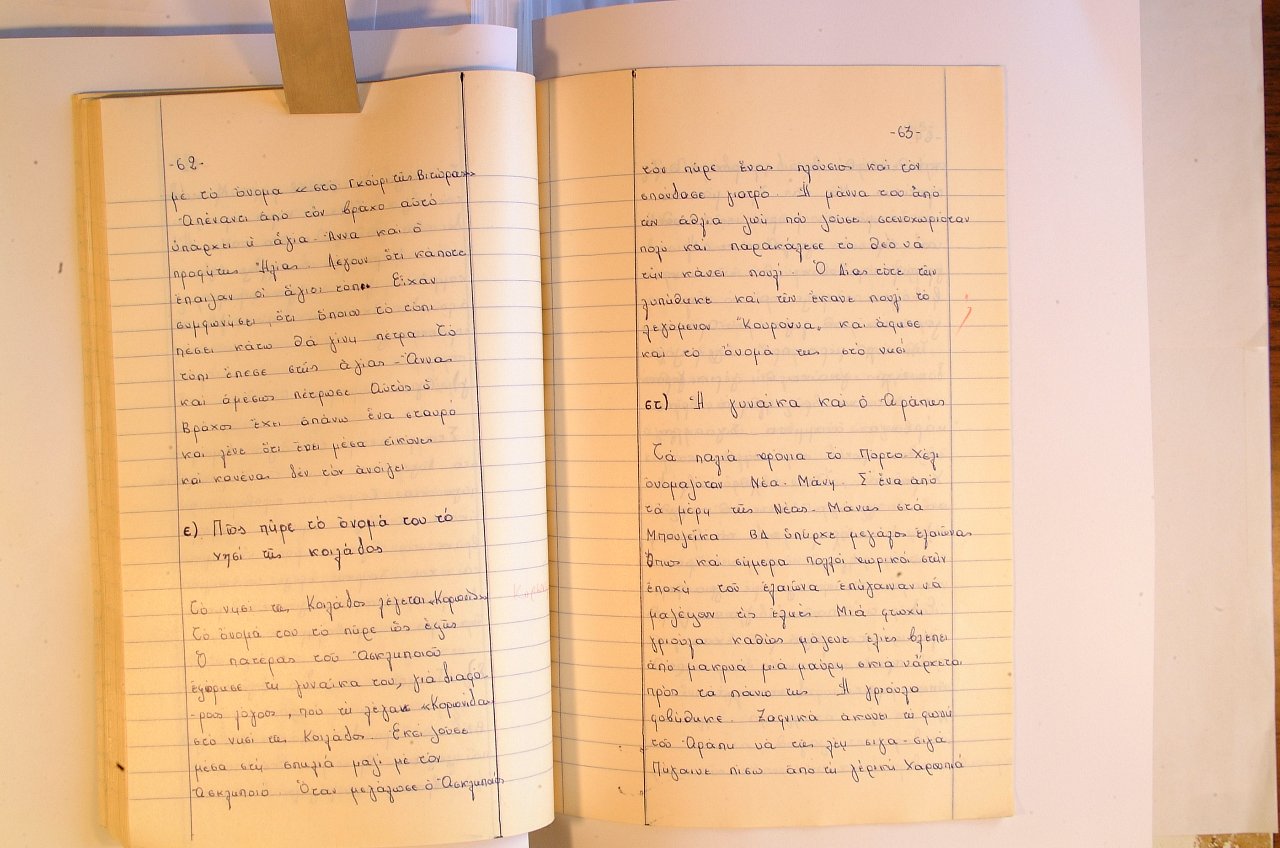 -62-
μέ τό ὄνομα «στό Γκούρι τῆς Βιτώρας»
Ἀπέναντι ἀπό τόν βράχο αὐτό
ὑπάρχει ἡ ἁγία-Ἄννα καί ὁ
προφήτης Ἠλίας. Λέγουν ὅτι κάποτε
ἔπαιζαν οἱ ἅγιοι τοπι. Εἶχαν
συμφωνήσει, ὅτι ὅποιου τό τόπι
πέσει κάτω θά γίνη πέτρα Τό
τόπι ἔπεσε στῆς ἁγίας-Ἄννας
καί ἀμέσως πέτρωσε Αὐτός ὁ
βράχος ἔχει ἐπάνω ἕνα σταυρό
καί λένε ὅτι ἔχει μέσα εἰκόνες
καί κανένας δέν τόν ἀνοίγει
ε) Πῶς πῆρε τό ὄνομά του τό
νησί τῆς κοιλάδος
Τό νησί τῆς Κοιλάδος λέγεται «Κορωνίδα»
Τό ὄνομά του τό πῆρε ὡς ἑξῆς
Ὁ πατέρας τοῦ Ἀσκληπιοῦ
ἐξώρισε τή γυναίκα του, γιά διαφό-
-ρους λόγους, πού τή λέγανε «Κορωνίδα»
στό νησί τῆς Κοιλάδος. Ἐκεῖ ζοῦσε
μέσα στή σπηλιά μαζί μέ τόν
Ἀσκληπιό. Ὅταν μεγάλωσε ὁ Ἀσκληπιός
-63-
τόν πῆρε ἕνας πλούσιος καί τόν
σπούδασε γιατρό. Ἡ μάννα του ἀπό
τήν ἄθλια ζωή πού ζοῦσε, στενοχωριόταν
πολύ καί παρακάλεσε τό θεό νά
τήν κάνει πουλί. Ὁ Δίας τότε τήν
λυπήθηκε καί τήν ἔκανε πουλί τό
λεγόμενον "Κουρούνα" καί ἄφησε
καί τό ὄνομά της στό νησί
στ) Ἡ γυναίκα καί ὁ Ἀράπης
Τά παλιά χρόνια τό Πόρτο-Χέλι
ὀνομαζόταν Νέα-Μάνη. Σ' ἕνα ἀπό
τά μέρη τῆς Νέας-Μάνης στά
Μπουλέϊκα ΒΔ ὑπῆρχε μεγάλος ἐλαιώνας
Ὅπως καί σήμερα πολλοί χωρικοί στήν
ἐποχή τοῦ ἐλαιώνα ἐπήγαιναν νά
μαζέψουν τίς ἐλιές. Μιά φτωχή
γριούλα καθώς μάζευε ἐλιές βλέπει
ἀπό μακρυά μιά μαύρη σκιά νἄρχεται
πρός τά πάνω της Ἡ γριούλα
φοβήθηκε. Ξαφνικά ἀκούει τή φωνή
τοῦ Ἀράπη νά τῆς λέη σιγά-σιγά
Πήγαινε πίσω ἀπό τή γέρικη Χαρουπιά